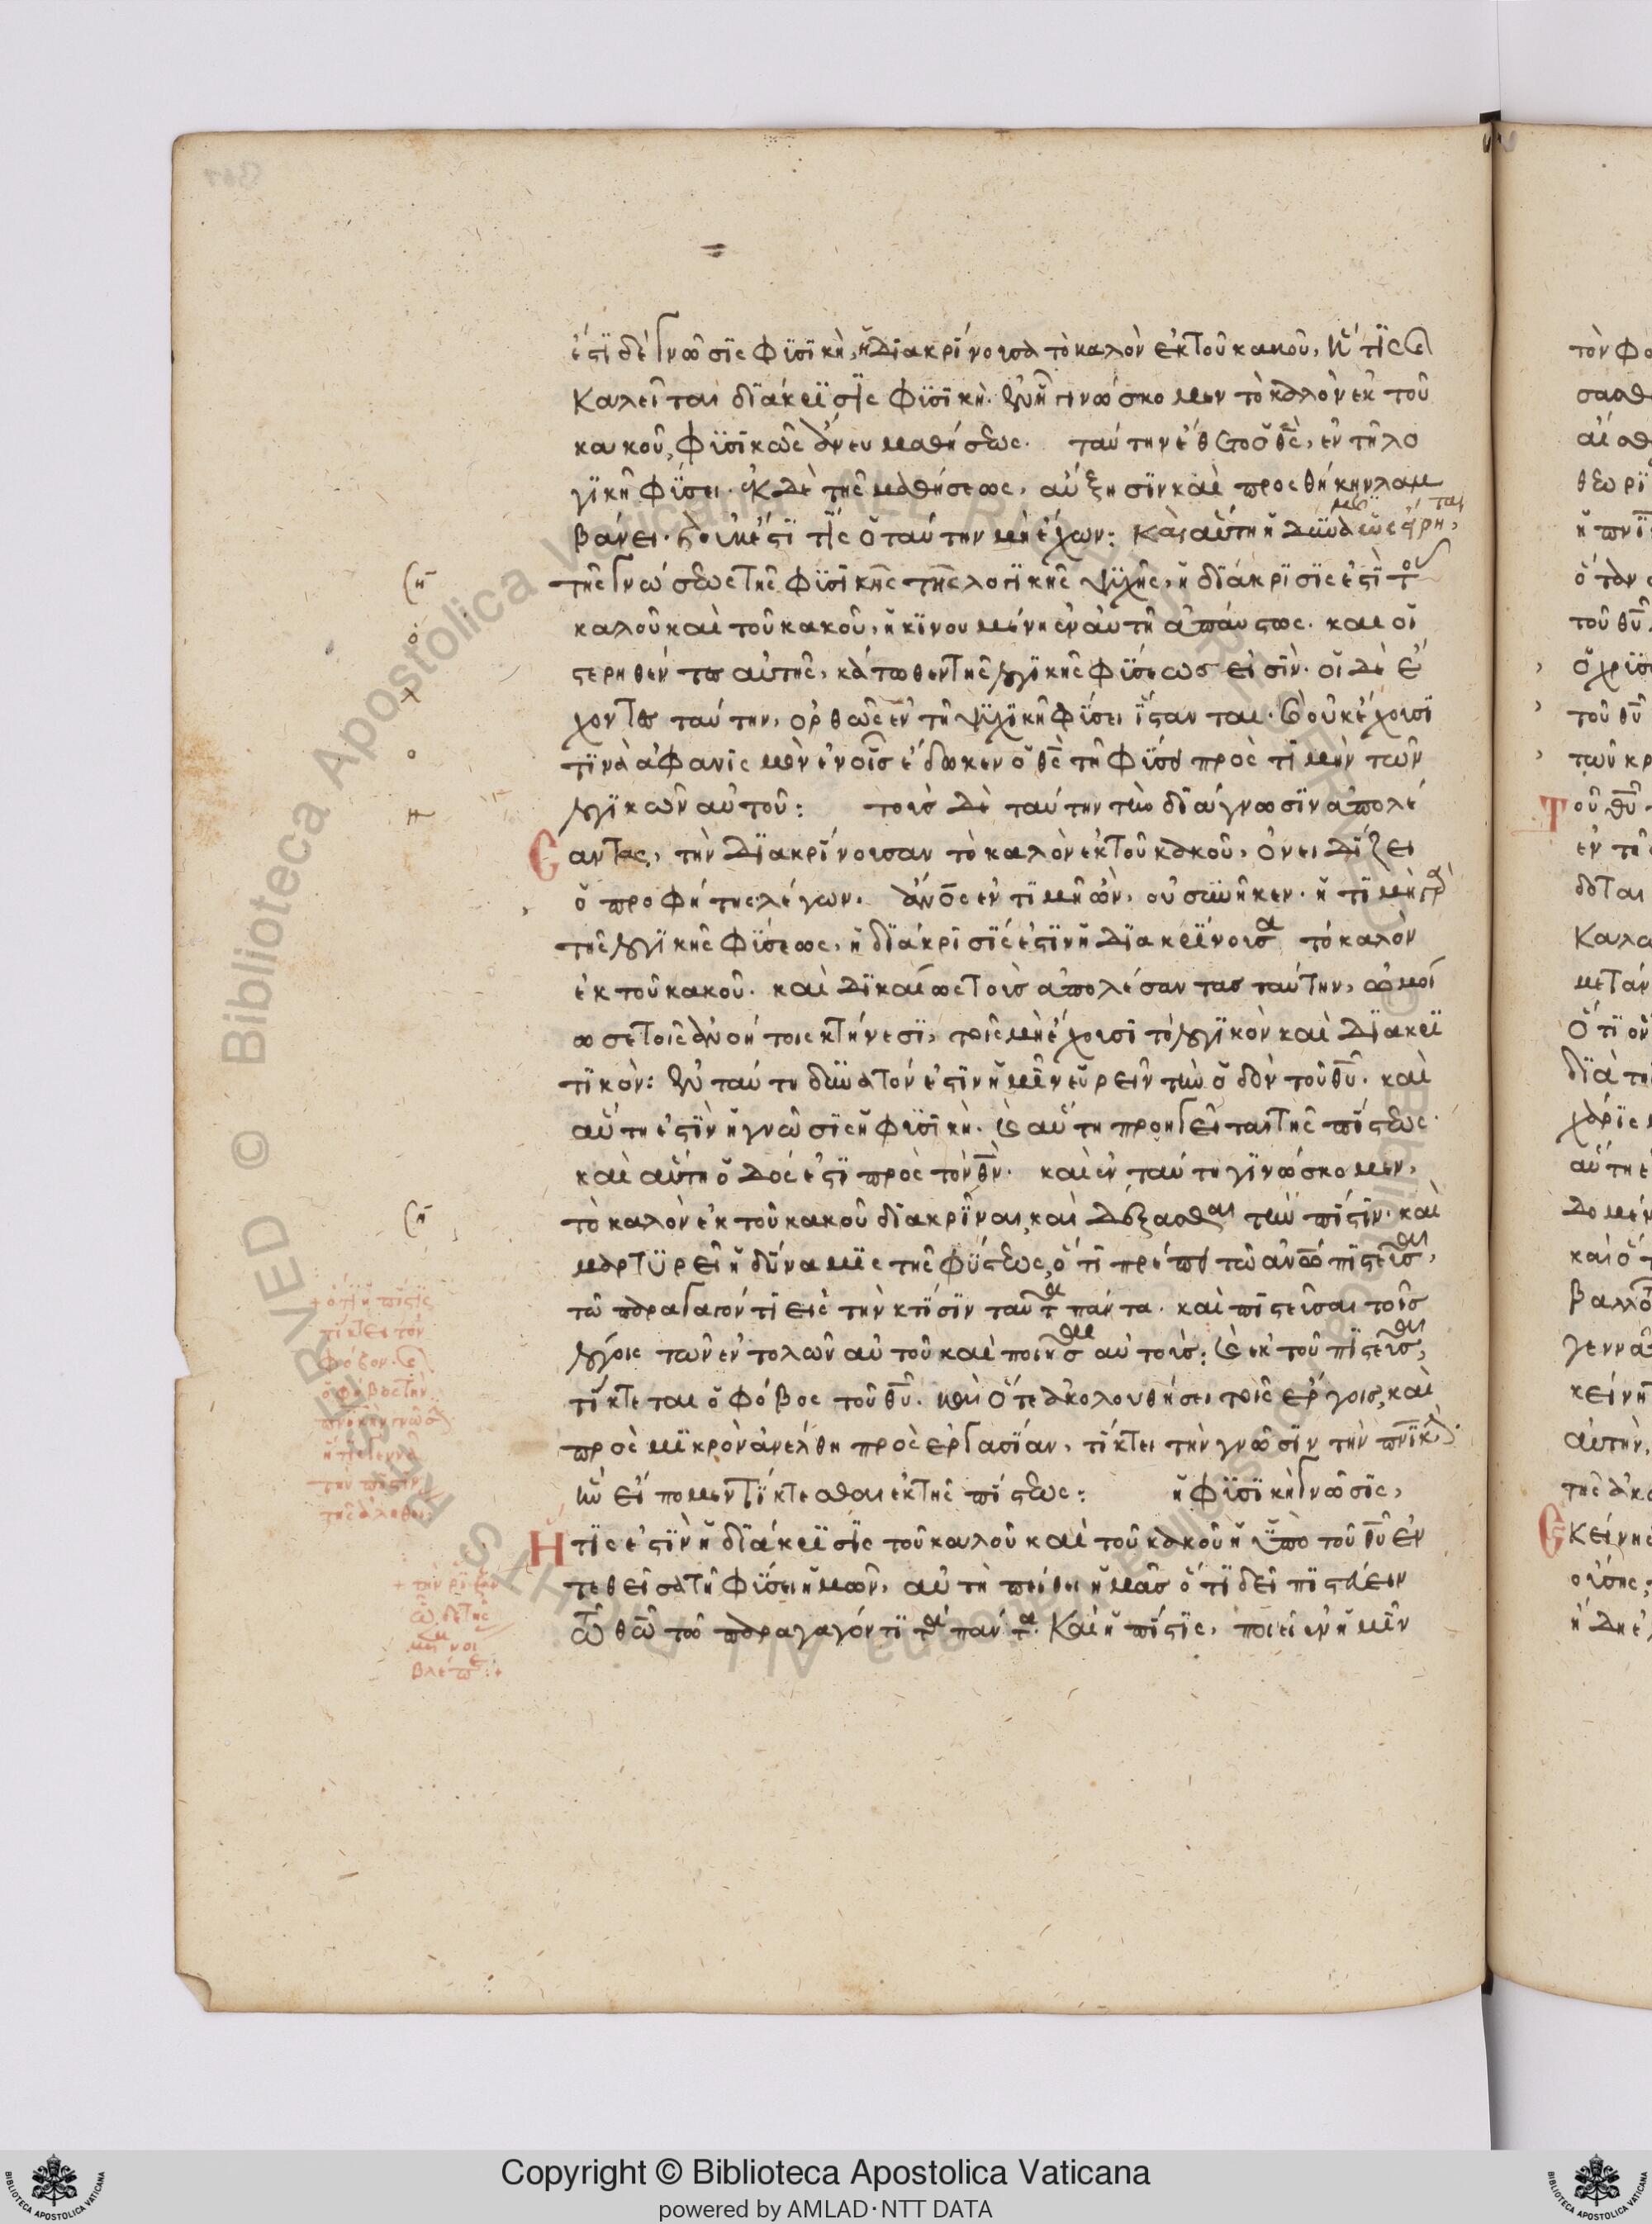 ἐστὶ δὲ γνῶσις φυσικὴ, ἡ διακρίνουσα τὸ καλὸν ἐκ τοῦ κακοῦ, ἥτις καὶ
καλεῖται διάκρισις φυσικὴ. ἐν ᾗ γινώσκομεν τὸ καλὸν ἐκ τοῦ
κακοῦ, φυσικῶς ἄνευ μαθήσεως. ταύτην ἔθετο ὁ θς, ἐν τῇ λο
γικῇ φύσει. ἐκ δὲ τῆς μαθήσεως, αὔξησιν καὶ προσθήκην λαμ
βάνει. καὶ οὐκ ἔστι τὶς ὁ ταύτην μὴ ἔχων: καὶ αὕτη ἡ δύναμις
τῆς γνώσεως τῆς φυσικῆς τῆς λογικῆς ψυχῆς, ἡ διάκρισις ἐστὶ τοῦ
καλοῦ καὶ τοῦ κακοῦ, ἡ κινουμένη ἐν αὐτῇ ἀπαύστως. καὶ οἱ
στερηθέντες αὐτῆς, κάτωθεν τῆς λογικῆς φύσεως εἰσὶν. οἱ δὲ ἔ
χοντες ταύτην, ὀρθῶς ἐν τῇ ψυχικῇ φύσει ἵστανται. καὶ οὐκ ἔχουσι
τινὰ ἀφανισμὸν ἐν οἷς ἔδωκεν ὁ θς τῇ φύσει πρὸς τιμὴν τῶν
λογικῶν αὐτοῦ: τοῖς δὲ ταύτην τὴν διάγνωσιν ἀπολέ
σαντας, τὴν διακρίνουσαν τὸ καλὸν ἐκ τοῦ κακοῦ, ὀνειδίζει
ὁ προφήτης λέγων. ἀνος ἐν τιμῇ ὢν, οὐ συνῆκεν. ἡ τιμὴ γὰρ
τῆς λογικῆς φύσεως, ἡ διάκρισίς ἐστιν ἡ διακρίνουσα τὸ καλὸν
ἐκ τοῦ κακοῦ. καὶ δικαίως τοὺς ἀπολέσαντας ταύτην, ὡμοί
ωσε τοῖς ἀνοήτοις κτήνεσι, τοῖς μὴ ἔχουσι τὸ λογικὸν καὶ διακρι
τικὸν: ἐν ταύτῃ δυνατόν ἐστιν ἡμῖν εὑρεῖν τὴν ὁδὸν τοῦ θυ. καὶ
αὕτη ἐστὶν ἡ γνῶσις ἡ φυσικὴ. καὶ αὕτη προηγεῖται τῆς πίστεως.
καὶ αὕτη ὁδός ἐστι πρὸς τὸν θν. καὶ ἐν ταύτῃ γινώσκομεν,
τὸ καλὸν ἐκ τοῦ κακοῦ διακρῖναι, καὶ δέξασθαι τὴν πίστιν. καὶ
μαρτυρεῖ ἡ δύναμις τῆς φύσεως, ὅτι πρέπει τῷ ἀνω πιστεῦσαι,
τῷ παραγαγόντι εἰς τὴν κτίσιν ταῦτα πάντα. καὶ πιστεῦσαι τοῖς
λόγοις τῶν ἐντολῶν αὐτοῦ καὶ ποιῆσαι αὐτοὺς: καὶ ἐκ τοῦ πιστεῦσαι,
τίκτεται ὁ φόβος τοῦ θυ. καὶ ὅτε ἀκολουθήσει τοῖς ἔργοις, καὶ
πρὸς μικρὸν ἀνέλθῃ πρὸς ἐργασίαν, τίκτει τὴν γνῶσιν τὴν πνικὴν
ἣν εἴπομεν τίκτεσθαι ἐκ τῆς πίστεως: ἡ φυσικὴ γνῶσις,
Ητις ἐστὶν ἡ διάκρισις τοῦ καλοῦ καὶ τοῦ κακοῦ ἡ ὑπὸ τοῦ θυ ἐν
τεθεῖσα τῇ φύσει ἡμῶν, αὐτὴ πείθει ἡμᾶς ὅτι δεῖ πιστεύειν
τῷ θω τῷ παραγαγόντι τὰ πάντα. καὶ ἡ πίστις, ποιεῖ ἐν ἡμῖν
+ ὅτι ἡ πίστις
τίκτει τὸν
φόβον. καὶ
ὁ φόβος τὴν
πνικὴν γνῶσιν
ἥτις γεννᾷ
τὴν πίστιν
τῆς ἀληθοῦς